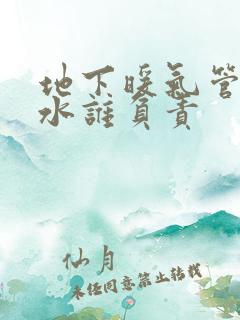 地下暖氣管
水誰負責
仙月
未经同意禁止转载